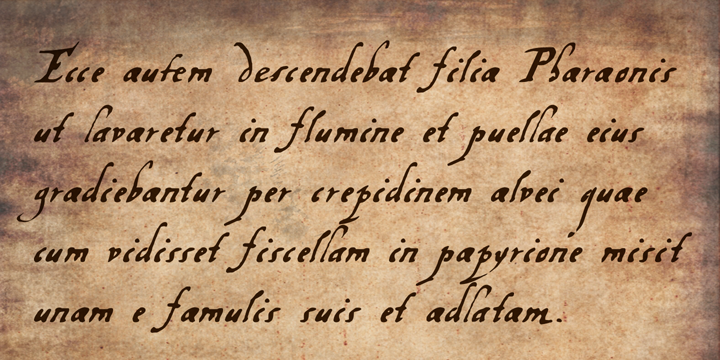 Ecce autem descendebat filia Pharaonis
ut lavaretur in flumine et puellae eius
gradiebantur per crepidinem alvei quae
cum vidisset fiscellam in papyrione misit
unam e famulis suis et adlatam.